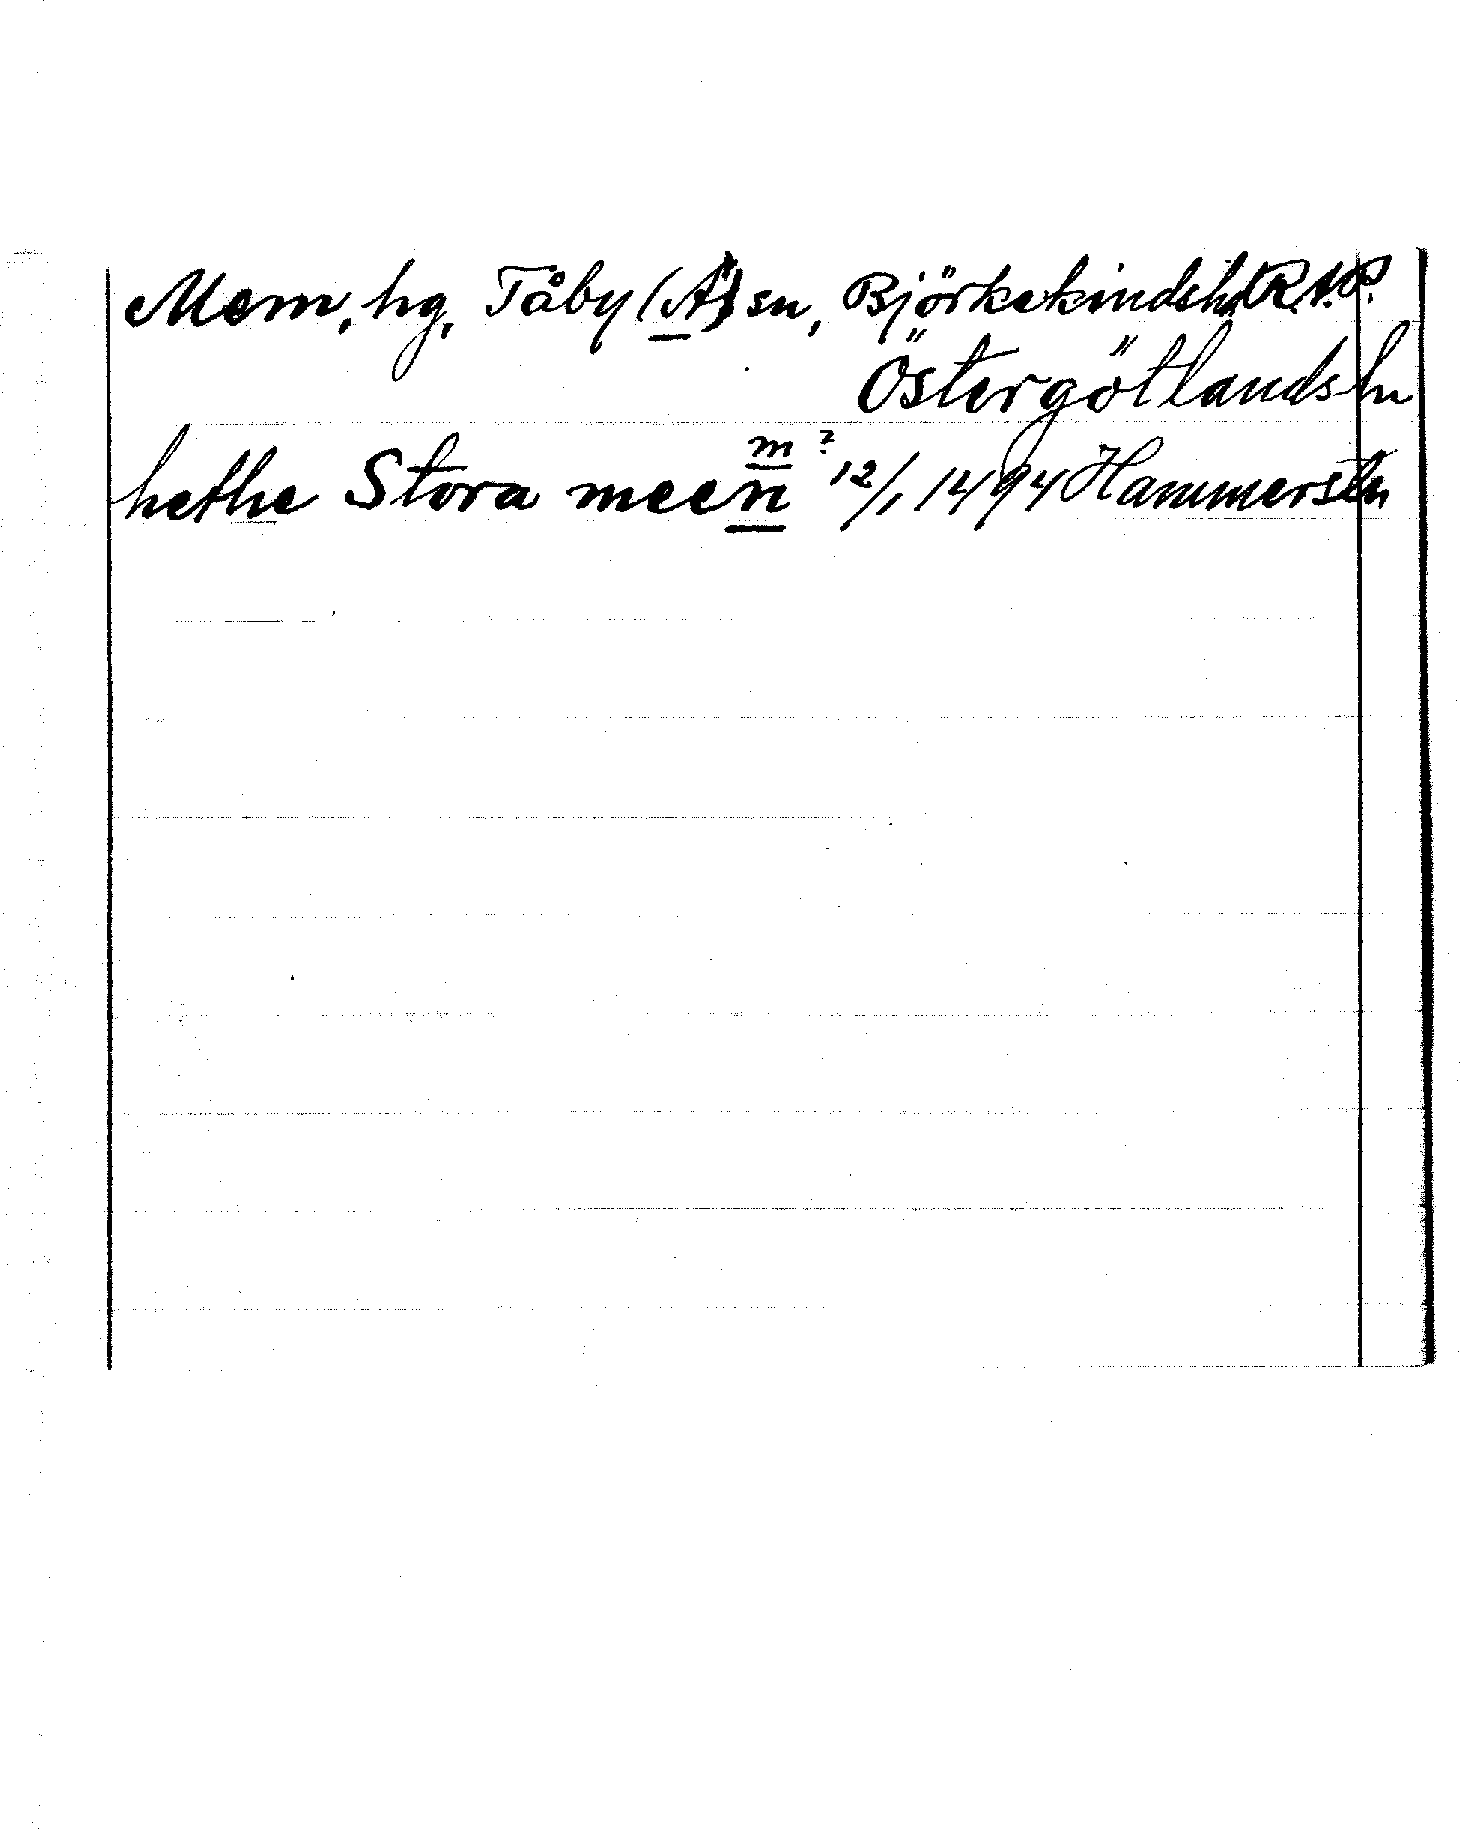 Mem, hg, Tåby (Ä) sn, Björkekindshd R.A.P.
Östergötlands ln
m ?
hethe Stora meen 12/1 1494 Hammersta